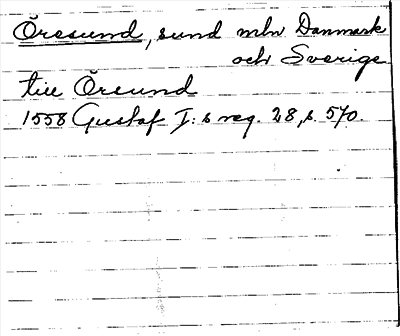 Öresund, sund mln Danmark
och Sverige
till Öresund
1558 Gustaf I:s reg. 28, s. 570.